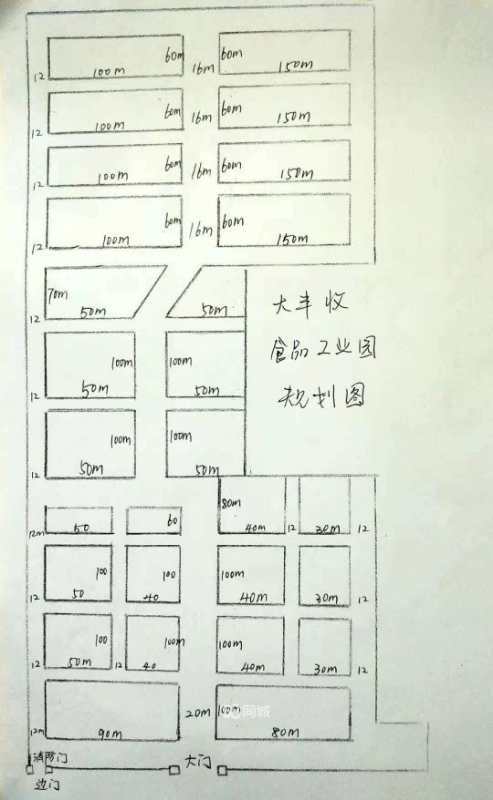 60m 60m
12 100m 16m 150m
60m 60m
12 100m 16m 150m
60m 60m
12 100m 16m 150m
60m 60m
12 100m 16m 150m
70m
12 50m 50m
大丰收
食品工业园
规划图
100m 100m
12 50m 50m
100m 100m
12 50m 50m
80m
12m 50 60 40m 12 30m 12
100 100 100m
12 50 40 40m 30m 12
100 100m 100m
12 50m 12 40 40m 30m 12
20m 100m
12m 90m 80m
同城
消防门 大门
边门